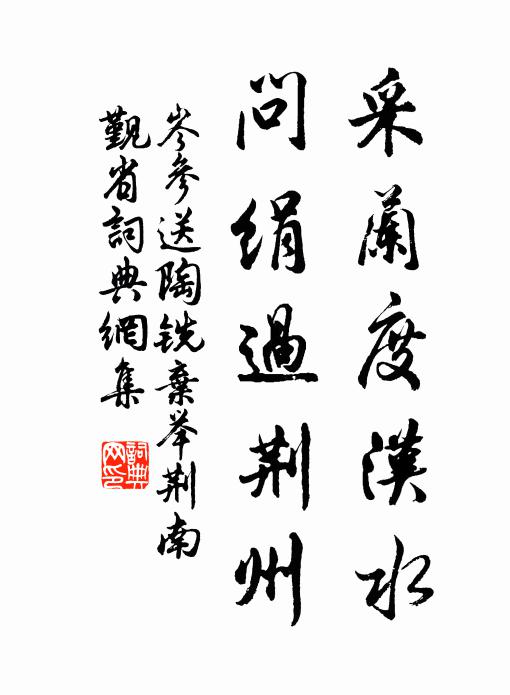 采蘭度漢水
問絹過荆州
岑參送陶銑棄举荆南
觐省詞典網集
詞典网印